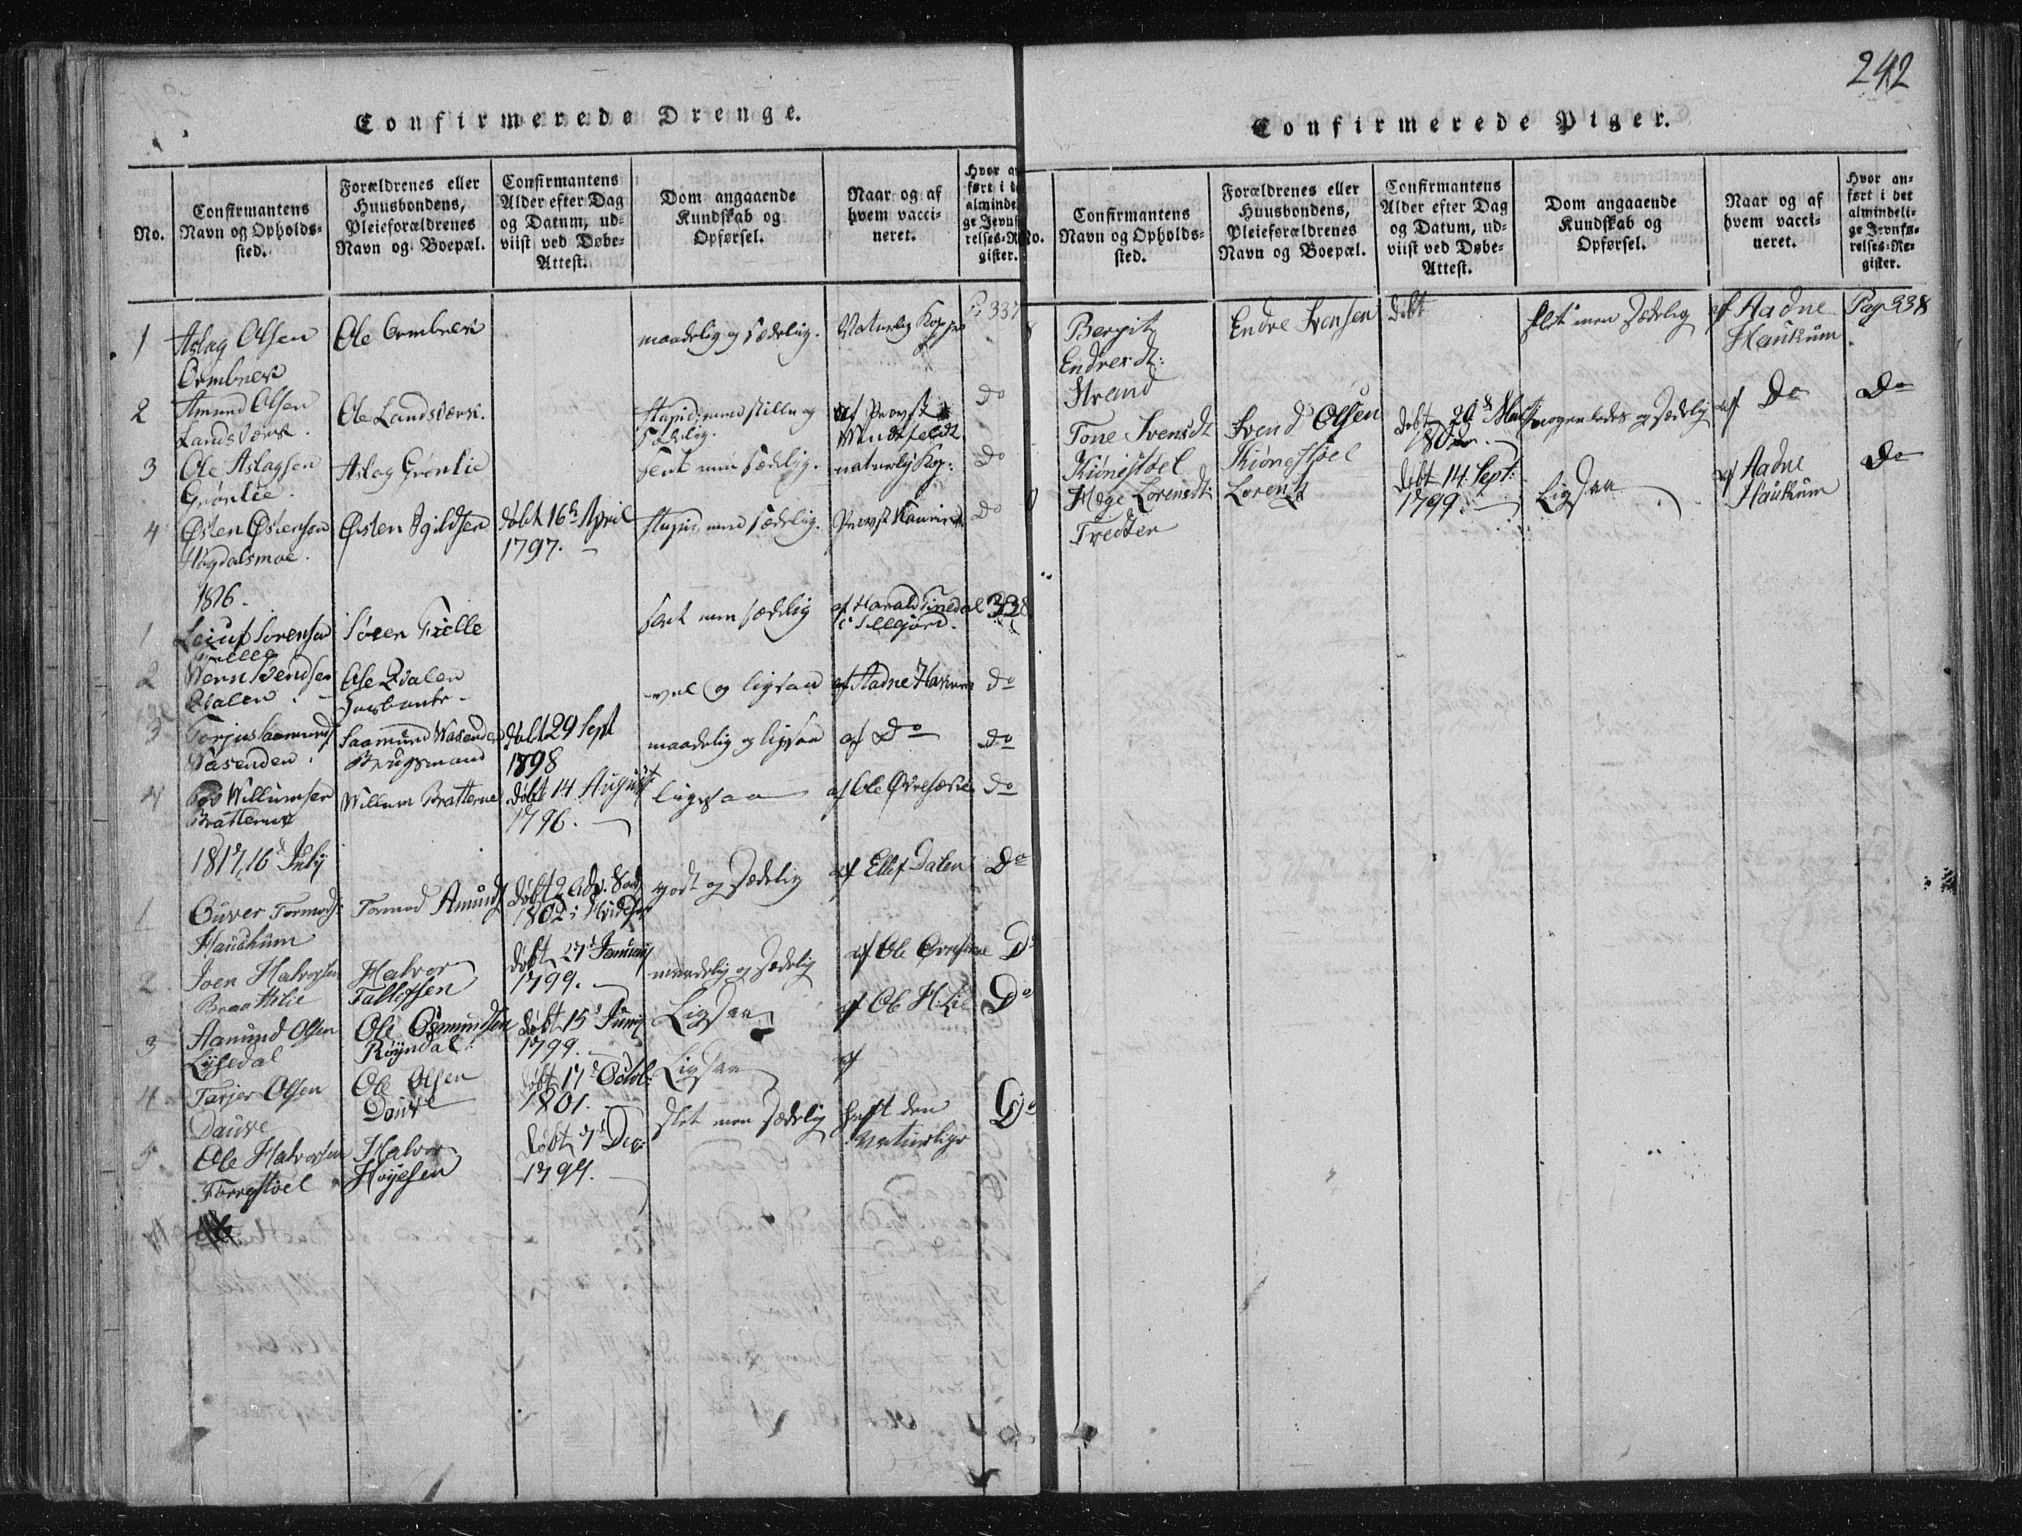 242
Confirmerede Drenge.
No.
Confirmantens
Navn og Opholds-
sted.
Forældrenes eller
Huusbondens,
Pleieforældrenes
Navn og Boepæl.
Confirmantens
Alder efter Dag
og Datum, ud-
viist ved Døbe-
Attest.
Dom angaaende
Kundskab og
Opførsel.
Naar og af
hvem vacci-
neret.
Hvor an
ført i de
almindel
ge Jevnf
relses-R
gister.
1
Aslag Olsen
Ormbrek
Ole Ormbrek
maadelig og Sædelig.
Naturlig Kopper
P. 337
2
Amund Olsen
Landsverk.
Ole Landsverk.
Stupid men stille og
Sædelig.
af Provst
Windfeldt
Do
3
Ole Aslagsen
Grønlie.
Aslag Grønlie
slet men Sædelig.
naturlig Kop:
Do
4
Østen Østensen
Høgdalsmoe.
Østen Egildsen
døbt 16de April
1797.
Stupid men Sædelig.
Provst
Do
1816.
1
Leiuf Sørensen
Fielle
Søren Fielle
slet men Sædelig
af Harald Tinedal
i Sillejord.
338
2
Svendsen
Qdalen.
Ole Qdalen
vel og ligsaa
af Aadne Haukum
Do
3
Torjus Saamunds.
Vasenden.
Saamund Wasenden
Brugsmand
døbt 29 Sept
1798
maadelig og ligsaa
af Do
Do
4
Willumsen
Bratterne
Willum Bratterne
døbt 14 August
1796.
Ligesaa
af Ole
Do
1817, 16de July
1
Guver Tormods:
Haukum
Tormod Amunds
Døbt 2 Adv. Sød
1802 i Hvidesøe
godt og Sædelig
af Ellef Dalen
Do
2
Joen Halvorsen
Braattelie
Halvor
Tallefsen
døbt 27de January
1799.
maadelig og Sædelig
af Ole
Do
3
Aamund Olsen
Lysedal
Ole Osmundsen
Røyndal:
døbt 15de Juny
1799.
Ligsaa
af Ole H. Lie
Do
4
Tarjer Olsen
Dauve
Ole Olsen
Dauve
døbt 17de Octob:
1801.
Ligsaa
af
5
Ole Halvorsen
Torrestoel
Halvor
Høyesen
døbt 7de Dec:
1799.
Slet men Sædelig
haft den
Naturlige
Do
Confirmerede Piger.
No.
Confirmantens
Navn og Opholds-
sted.
Forældrenes eller
Huusbondens,
Pleieforældrenes
Navn og Boepæl.
Confirmantens
Alder efter Dag
og Datum, ud-
viist ved Døbe-
Attest.
Dom angaaende
Kundskab og
Opførsel.
Naar og af
hvem vacci-
neret.
Hvor an-
ført i det
almindeli-
ge Jevnfø-
relses-Re-
gister.
8
Bergit
Endresdt:
Strand
Endre Svensen
døbt
slet men Sædelig
af Aadne
Haukum
Pag 338
Tone Svensdt
Kiønestoel
Svend Olsen
Kiønestoel
døbt 29de Marts
1802.
nogenledes og Sædelig
af Do
Do
Hæge Lorensdt:
Tredten
Lorents
døbt 14 Sept:
1799.
Ligsaa
af Aadne
Haukum
Do